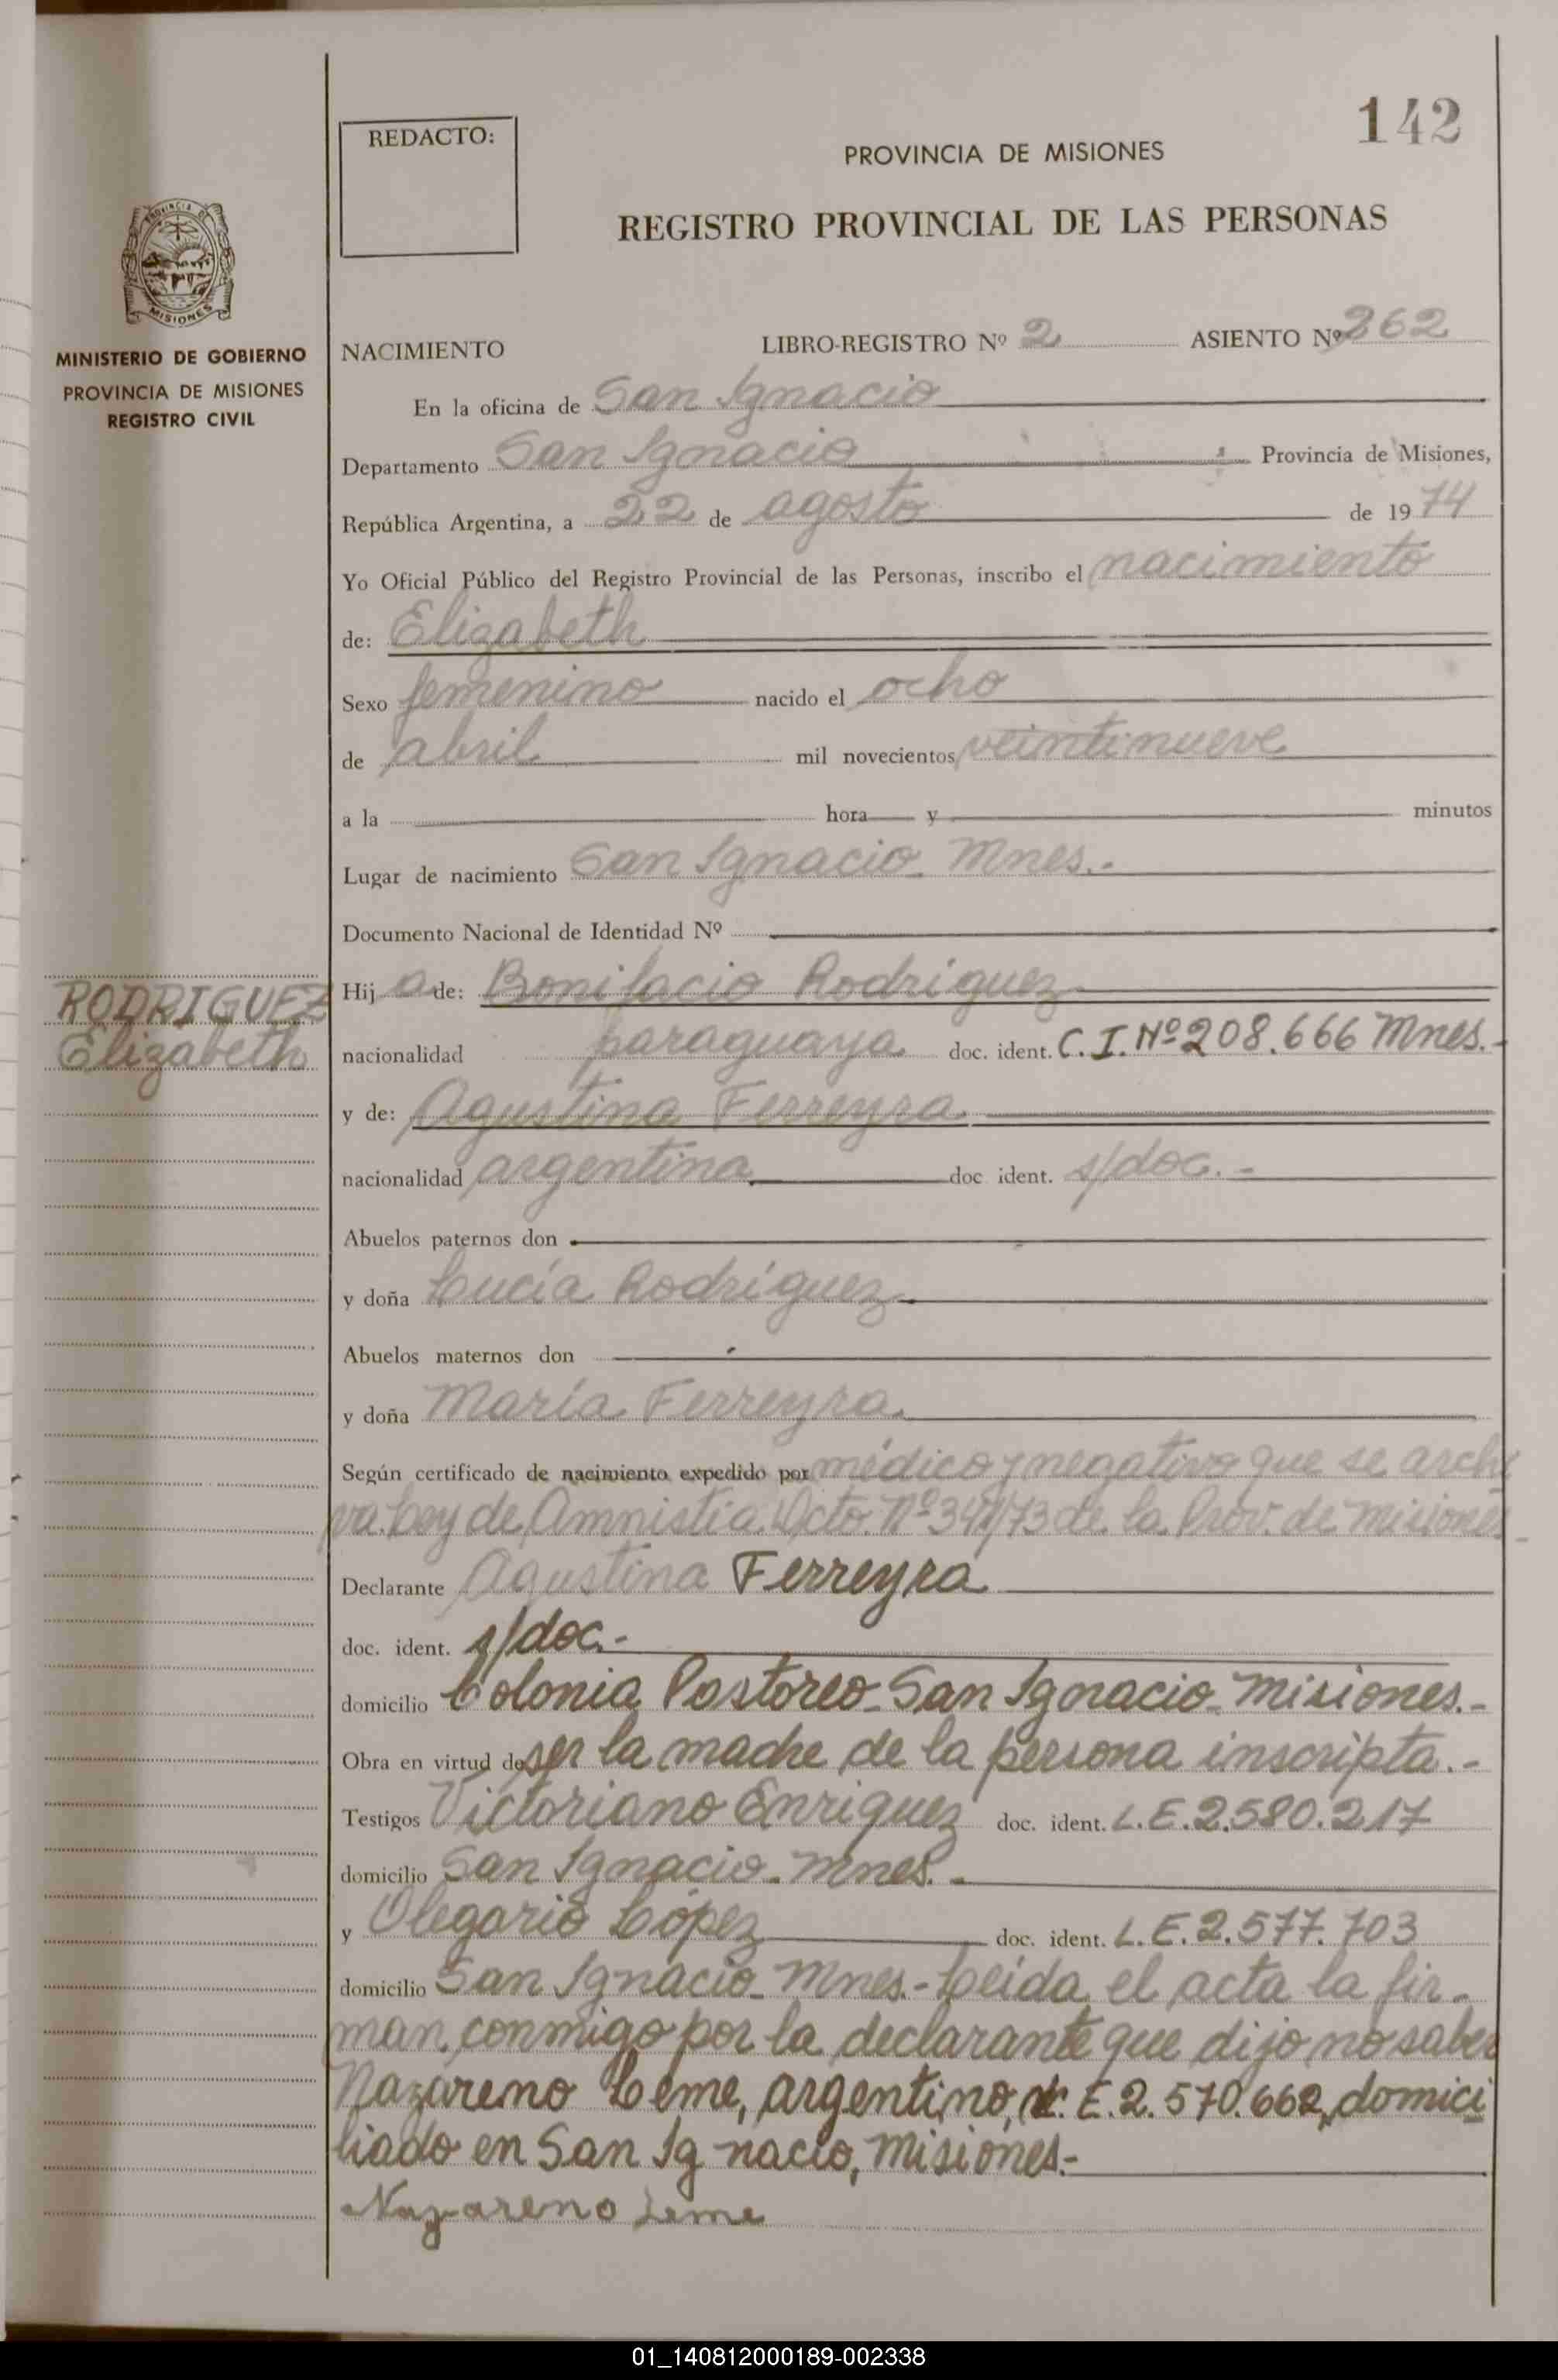 142
REDACTO:
PROVINCIA DE MISIONES
REGISTRO PROVINCIAL DE LAS PERSONAS
PROVINCIA DE
MISIONES
MINISTERIO DE GOBIERNO
PROVINCIA DE MISIONES
REGISTRO CIVIL
NACIMIENTO LIBRO-REGISTRO Nº 2 ASIENTO Nº 262
En la oficina de San Ignacio
Departamento San Ignacio Provincia de Misiones,
República Argentina, a 22 de agosto de 1974
Yo Oficial Público del Registro Provincial de las Personas, inscribo el nacimiento
de: Elizabeth
Sexo femenino nacido el ocho
de abril mil novecientos veintinueve
a la hora y minutos
Lugar de nacimiento San Ignacio Mnes.-
Documento Nacional de Identidad Nº
RODRIGUEZ
Elizabeth
Hija de: Bonifacio Rodríguez
nacionalidad paraguaya doc. ident. C. I. Nº 208.666 Mnes.-
y de: Agustina Ferreyra
nacionalidad argentina doc ident. s/doc.-
Abuelos paternos don
y doña Lucía Rodríguez
Abuelos maternos don
y doña María Ferreyra
Según certificado de nacimiento expedido por médico y negativo que se archi
va Ley de Amnistia. Dcto. Nº 341/73 de la Prov. de Misiones
Declarante Agustina Ferreyra
doc. ident. s/doc.-
domicilio Colonia Pastoreo-San Ignacio-Misiones.-
Obra en virtud de ser la madre de la persona inscripta.-
Testigos Victoriano Enriquez doc. ident. L.E.2.580.217
domicilio San Ignacio-Mnes.-
y Olegario López doc. ident. L.E.2.577.703
domicilio San Ignacio-Mnes.-Leída el acta la fir-
man conmigo por la declarante que dijo no saber
Nazareno Leme, argentino, L. E. 2.570.662, domici
liado en San Ignacio, Misiones.-
Nazareno Leme
01_140812000189-002338